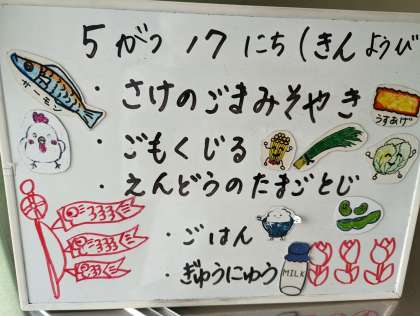 5がつ 17にち(きんようび
サーモン
・さけのごまみそやき
うすあげ
・ごもくじる
・えんどうのたまごとじ
・ごはん
・ぎゅうにゅう
MILK